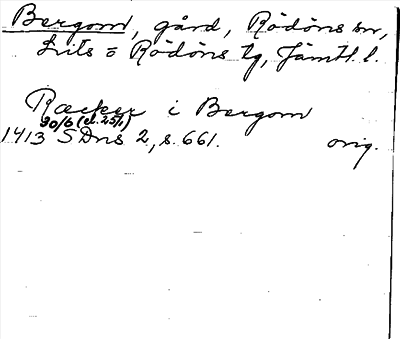 Bergom, gård, Rödöns sn,
Lits o Rödöns tg, Jämtl. l.
Ræcker i Bergom
30/6 (el. 25/1)
1413 SDns 2, s. 661. orig.